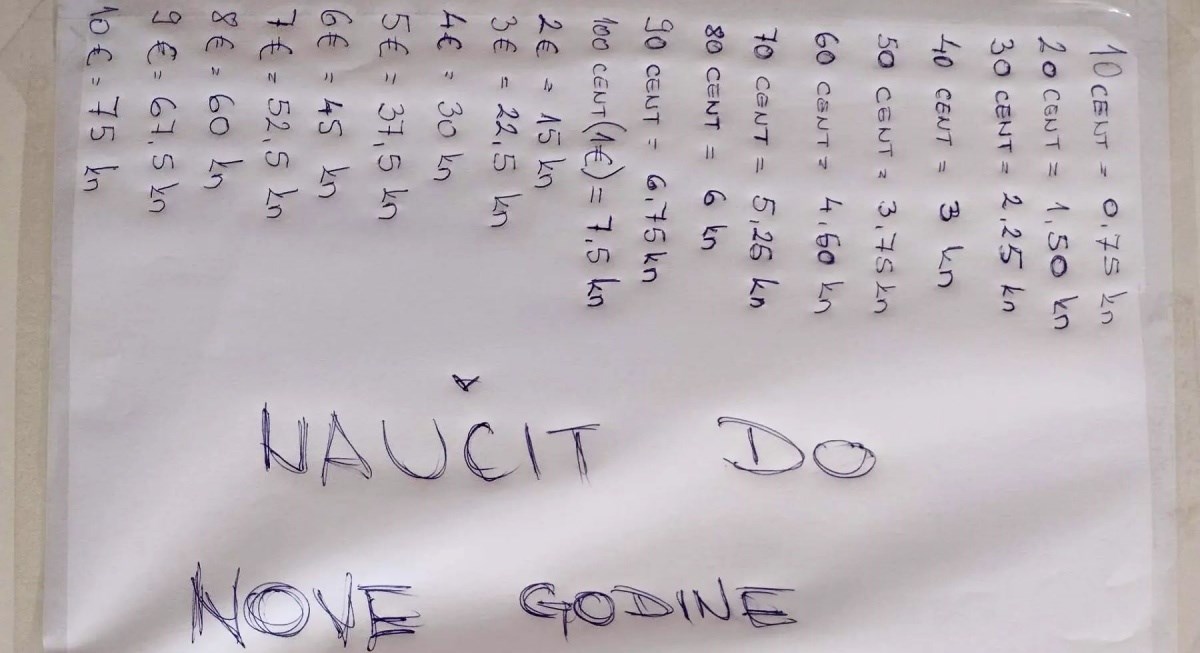 10 CENT = 0,75 kn
20 CENT = 1,50 kn
30 CENT = 2,25 kn
40 CENT = 3 kn
50 CENT = 3,75 kn
60 CENT = 4,60 kn
70 CENT = 5,25 kn
80 CENT = 6 kn
90 CENT = 6,75 kn
100 CENT (1€) = 7,5 kn
2€ = 15 kn
3€ = 22,5 kn
4€ = 30 kn
5€ = 37,5 kn
6€ = 45 kn
7€ = 52,5 kn
8€ = 60 kn
9€ = 67,5 kn
10€ = 75 kn
NAUČIT DO
NOVE GODINE